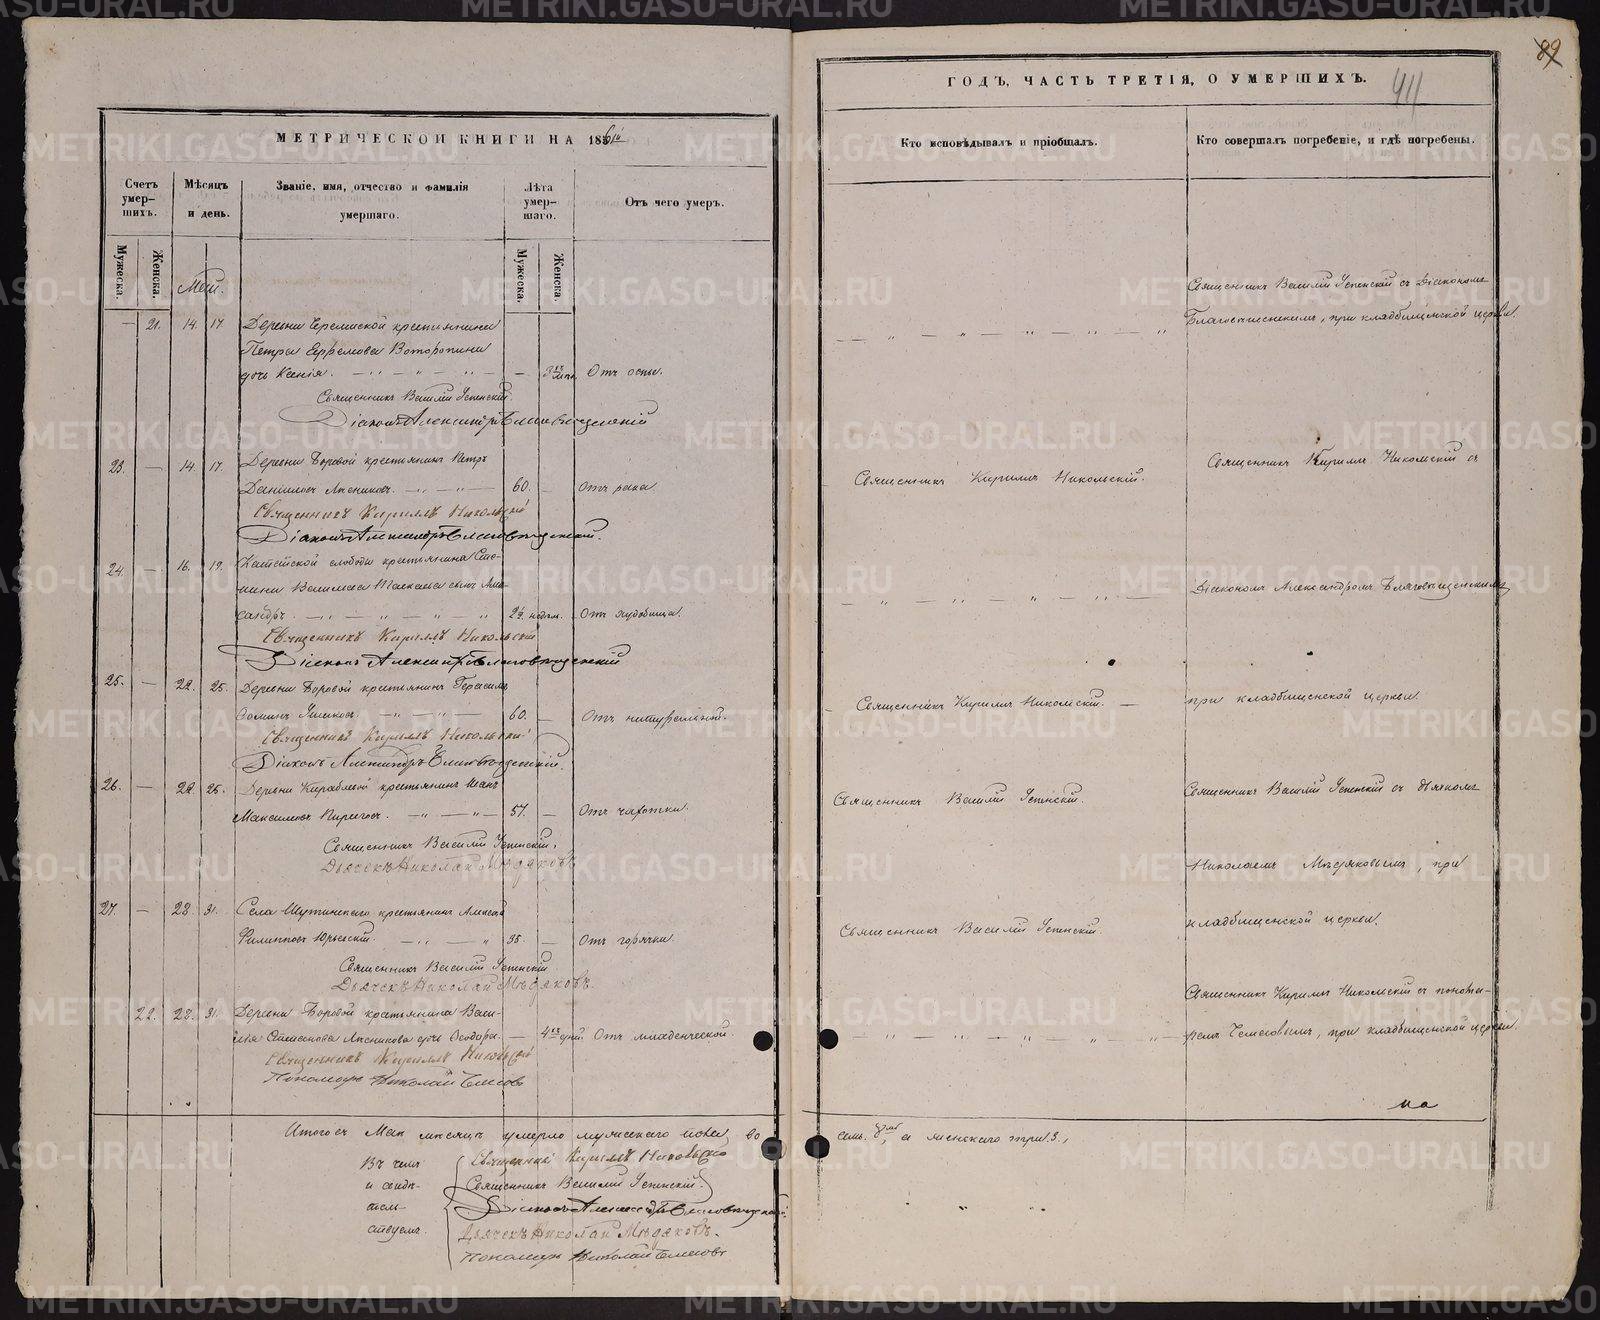 МЕТРИЧЕСКОЙ КНИГИ НА 1861й
Счетъ умер-шихъ.
Мѣсяцъ и день.
Званіе, имя, отчество и фамилія умершаго.
Лѣта умер-шаго.
Отъ чего умеръ.
Мужеска.
Женска.
Мужеска.
Женска.
Май.
— 21. 14. 17. Деревни крестьянина
Петра Ефремова Воторопина
дочь Ксенія. 3 Отъ оспы.
Священникъ Василій Успенскій.
Діаконъ Александръ Благовѣщенскій
23. — 14. 17. Деревни Боровой крестьянинъ Петръ
Даниловъ Лѣсниковъ. 60. — Отъ рака.
Священникъ Кириллъ Никольскій
Діаконъ Александръ Благовѣщенскій.
24. — 16. 19. Катайской слободы крестьянина
Василья сынъ Але-
ксандръ. 2½ недѣл. Отъ худобища.
Священникъ Кириллъ Никольскій
Діаконъ Александръ Благовѣщенскій
25. — 22. 25. Деревни Боровой крестьянинъ Герасимъ
Ушаковъ. 60. — Отъ натуральной.
Священникъ Кириллъ Никольскій
Діаконъ Александръ Благовѣщенскій.
26. — 22. 25. Деревни крестьянинъ Иванъ
Максимовъ 57. — Отъ чахотки.
Священникъ Василій Успенскій.
Дьячекъ Николай Мѣдяковъ
27. — 28. 31. Села Шутинскаго крестьянинъ Алексѣй
Филипповъ Юрьевскій. 35. — Отъ горячки.
Священникъ Василій Успенскій
Дьячекъ Николай Мѣдяковъ.
22. 28. 31. Деревни Боровой крестьянина Васи-
лья Лѣсникова дочь Ѳеодора. — 4 дней. Отъ младенческой.
Священникъ Кириллъ Никольскій
Пономарь Николай
Итого въ Маѣ мѣсяцѣ умерло мужескаго пола
Въ чемъ
и свидѣ-
тель-
ствуемъ.
Священникъ Кириллъ Никольскій
Священникъ Василій Успенскій.
Діаконъ Александръ Благовѣщенскій.
Дьячекъ Николай Мѣдяковъ.
Пономарь Николай
89
411
ГОДЪ, ЧАСТЬ ТРЕТІЯ, О УМЕРШИХЪ.
Кто исповѣдывалъ и пріобщалъ.
Кто совершалъ погребеніе, и гдѣ погребены.
Священникъ Василій Успенскій съ Діакономъ
Благовѣщенскимъ, при кладбищенской церкви.
Священникъ Кириллъ Никольскій.
Священникъ Кириллъ Никольскій съ
Діакономъ Александромъ Благовѣщенскимъ
Священникъ Кириллъ Никольскій. —
при кладбищенской церкви.
Священникъ Василій Успенскій.
Священникъ Василій Успенскій съ дьячкомъ
Николаемъ Мѣдяковымъ, при
Священникъ Василій Успенскій.
кладбищенской церкви.
Священникъ Кириллъ Никольскій съ понома-
ремъ при кладбищенской церкви.
семь, а женскаго три 3.,
METRIKI.GASO-URAL.RU